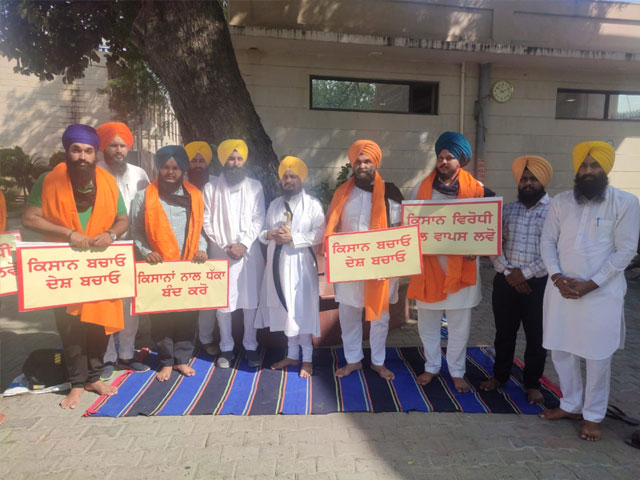 ਕਿਸਾਨ ਬਚਾਓ
ਦੇਸ਼ ਬਚਾਓ
ਕਿਸਾਨਾਂ ਨਾਲ ਧੱਕਾ
ਬੰਦ ਕਰੋ
ਕਿਸਾਨ ਬਚਾਓ
ਦੇਸ਼ ਬਚਾਓ
ਕਿਸਾਨ ਵਿਰੋਧੀ
ਵਾਪਸ ਲਵੋ